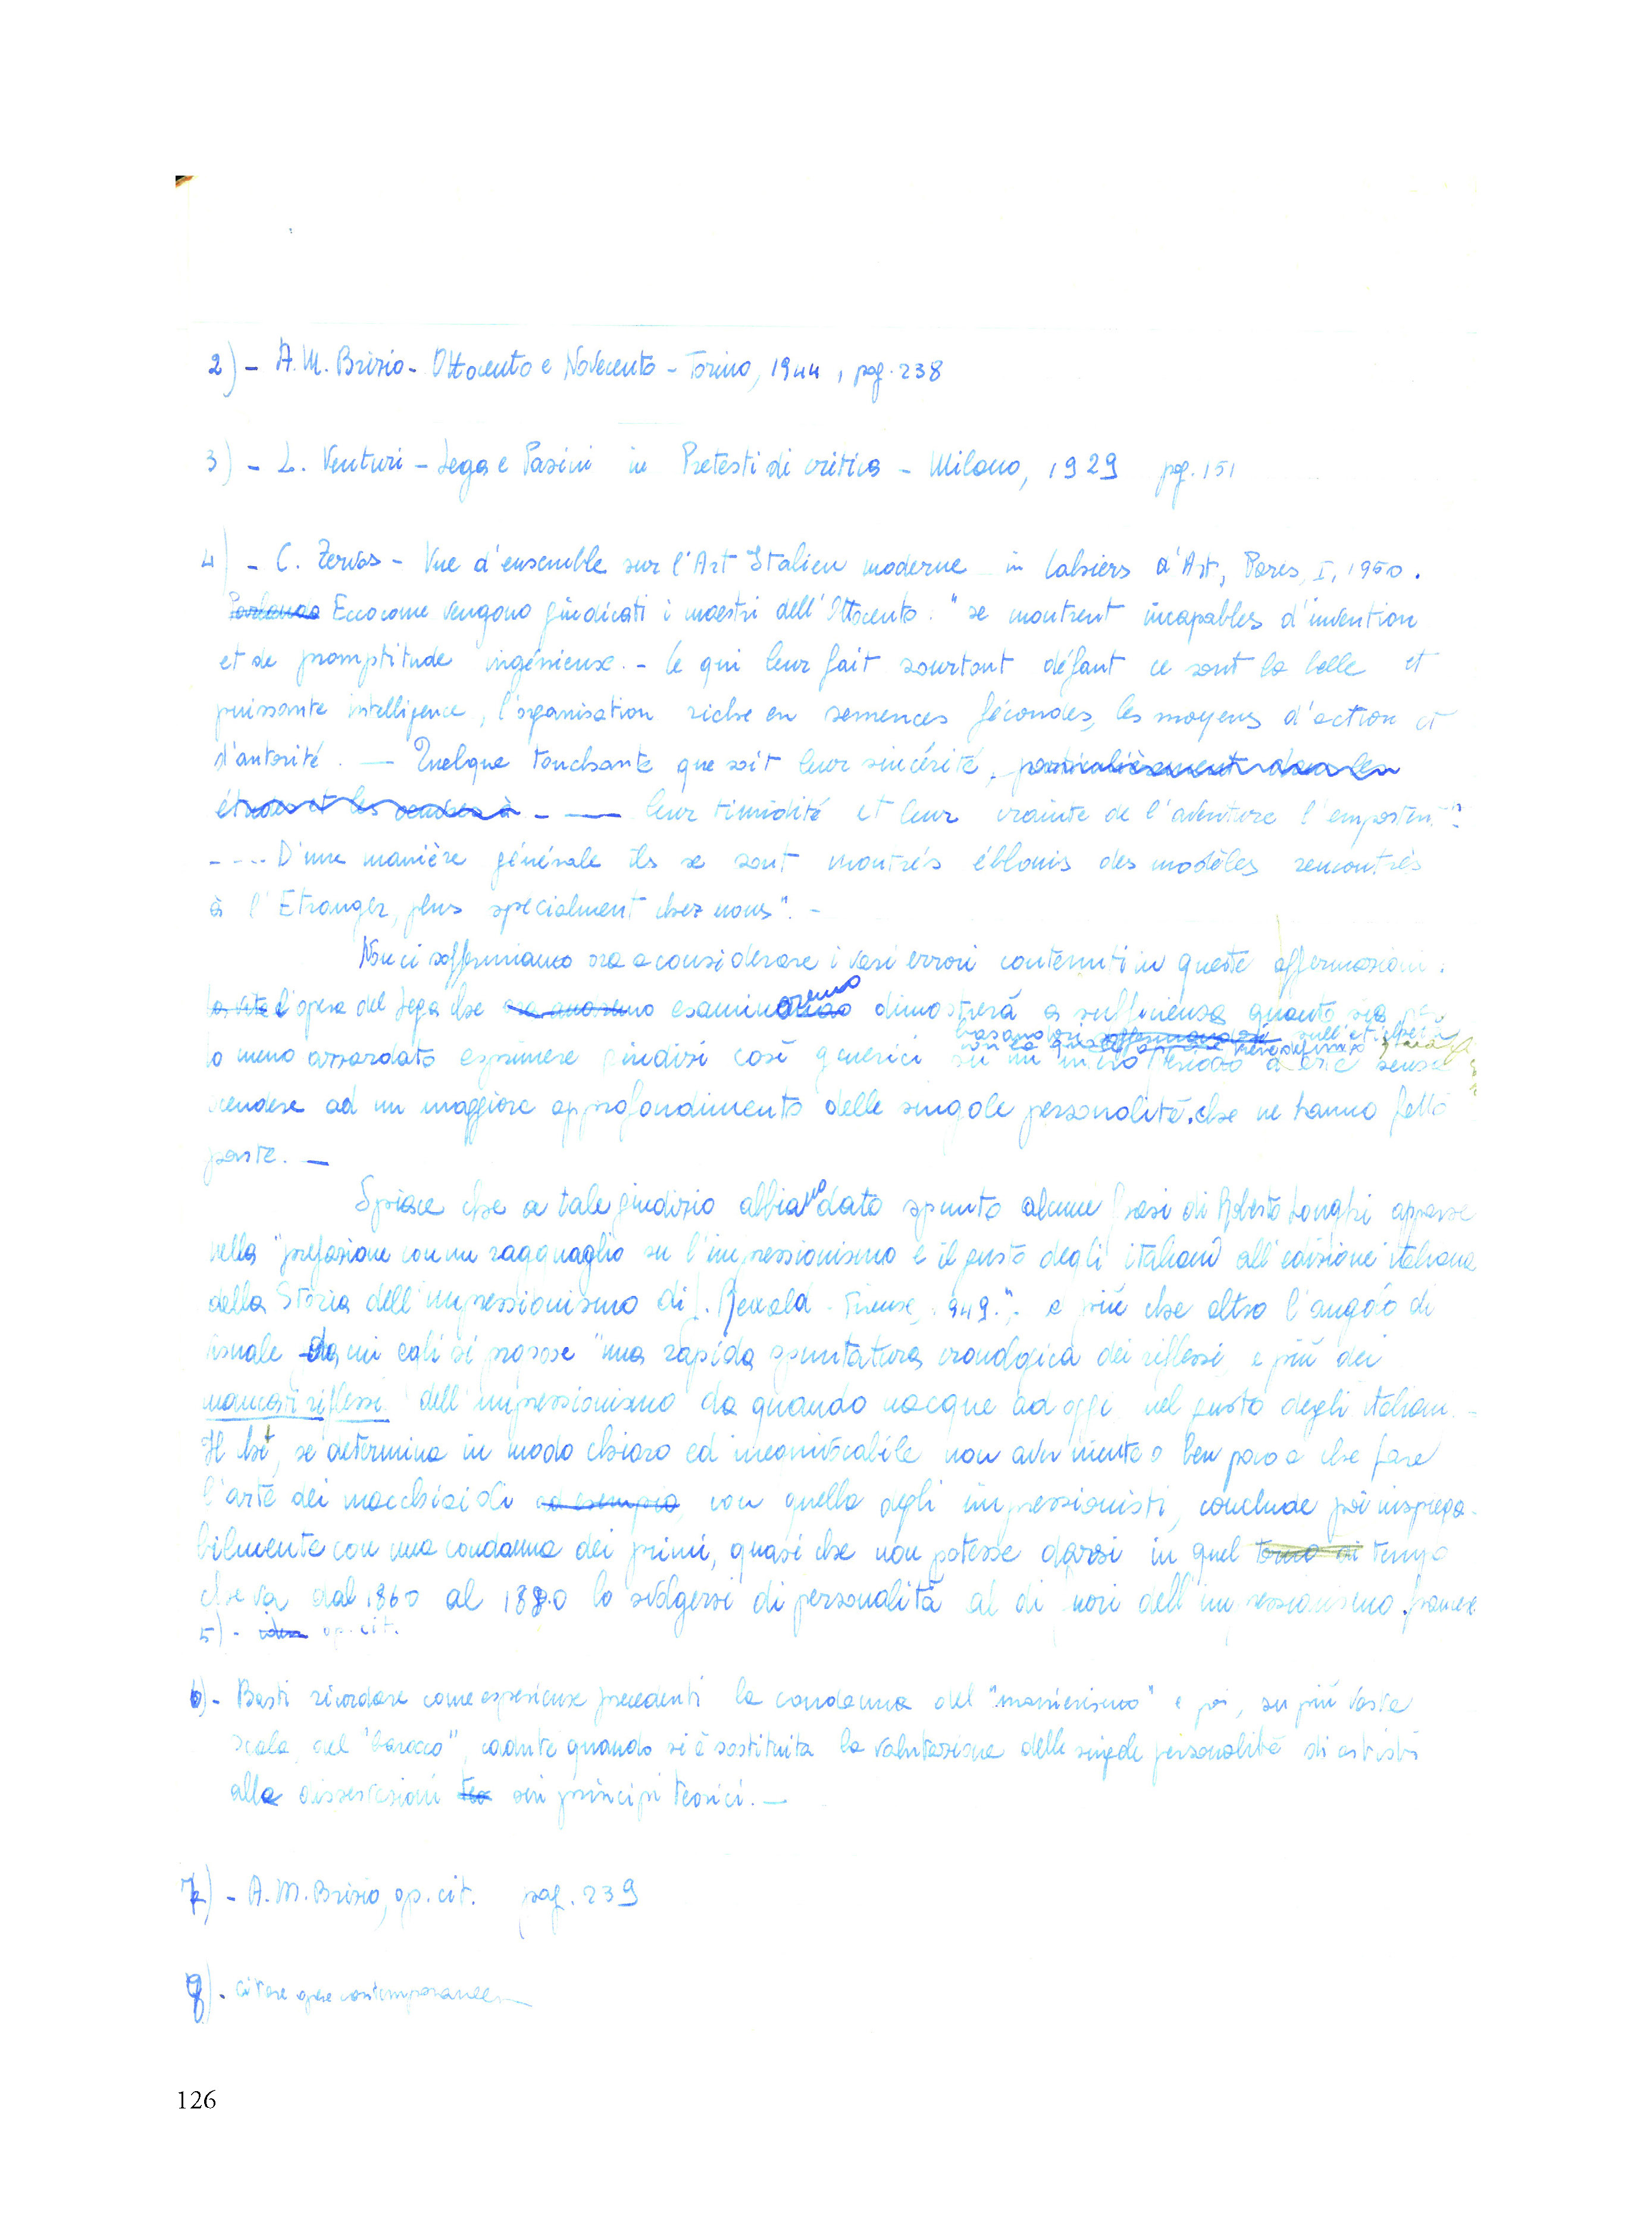 2) - A.M. Brizio - Ottocento e Novecento - Torino, 1944, pag. 238
3) - L. Venturi - Lega e Pasini in Pretesti di critica - Milano, 1929 pag. 151
4) - C. Zervos - Vue d'ensemble sur l'Art Italien moderne in Cahiers d'Art, Paris, I, 1950.
Parlando Ecco come vengono giudicati i maestri dell'Ottocento: "se montrent incapables d'invention
et de promptitude ingénieuse. - Ce qui leur fait sourtout défaut ce sont la belle et
puissante intelligence, l'organisation riche en semences fécondes, les moyens d'action et
d'autorité. — Quelque touchante que soit leur sincérité, particulièrement dans les
études et les - — leur timidité et leur crainte de l'aventure l'emporten."
- - - - D'une manière générale ils se sont montrés éblouis des modèles rencontrés
à l'Etranger, plus spécialment chez nous". -
Non ci soffermiamo ora a considerare i vari errori contenuti in queste affermazioni:
la vita l'opera del Lega che esamineremo dimostrerà a sufficienza quanto sia per
lo meno azzardato esprimere giudizi così generici senza
scendere ad un maggiore approfondimento delle singole personalità che ne hanno fatto
parte. —
Spiace che a tale giudizio abbiano dato spunto alcune frasi di Roberto Longhi apparse
nella "prefazione con un ragguaglio su l'impressionismo e il gusto degli italiani all'edizione italiana
della Storia dell'impressionismo di J. Rewald - Firenze, 1949." e più che altro l'angolo di
visuale da cui egli si propose "una rapida spuntatura cronologica dei riflessi, e più dei
mancati riflessi dell'impressionismo da quando nacque ad oggi nel gusto degli italiani. -
Il che, se determina in modo chiaro ed inequivocabile non aver niente o ben poco a che fare
l'arte dei macchiaioli ad esempio con quella degli impressionisti, conclude poi inspiega-
bilmente con una condanna dei primi, quasi che non potesse darsi in quel torno di tempo
che va dal 1860 al 1880 lo svolgersi di personalità al di fuori dell'impressionismo francese
5) - idem op. cit.
6) - Basti ricordare come esperienze precedenti la condanna del "manierismo" e poi, su più vasta
scala, del "barocco", cadute quando si è sostituita la valutazione delle singole personalità di artisti
alle dissertazioni teo sui principi teorici. —
7) - A.M. Brizio, op. cit. pag. 239
8) - citare opere contemporanee
126